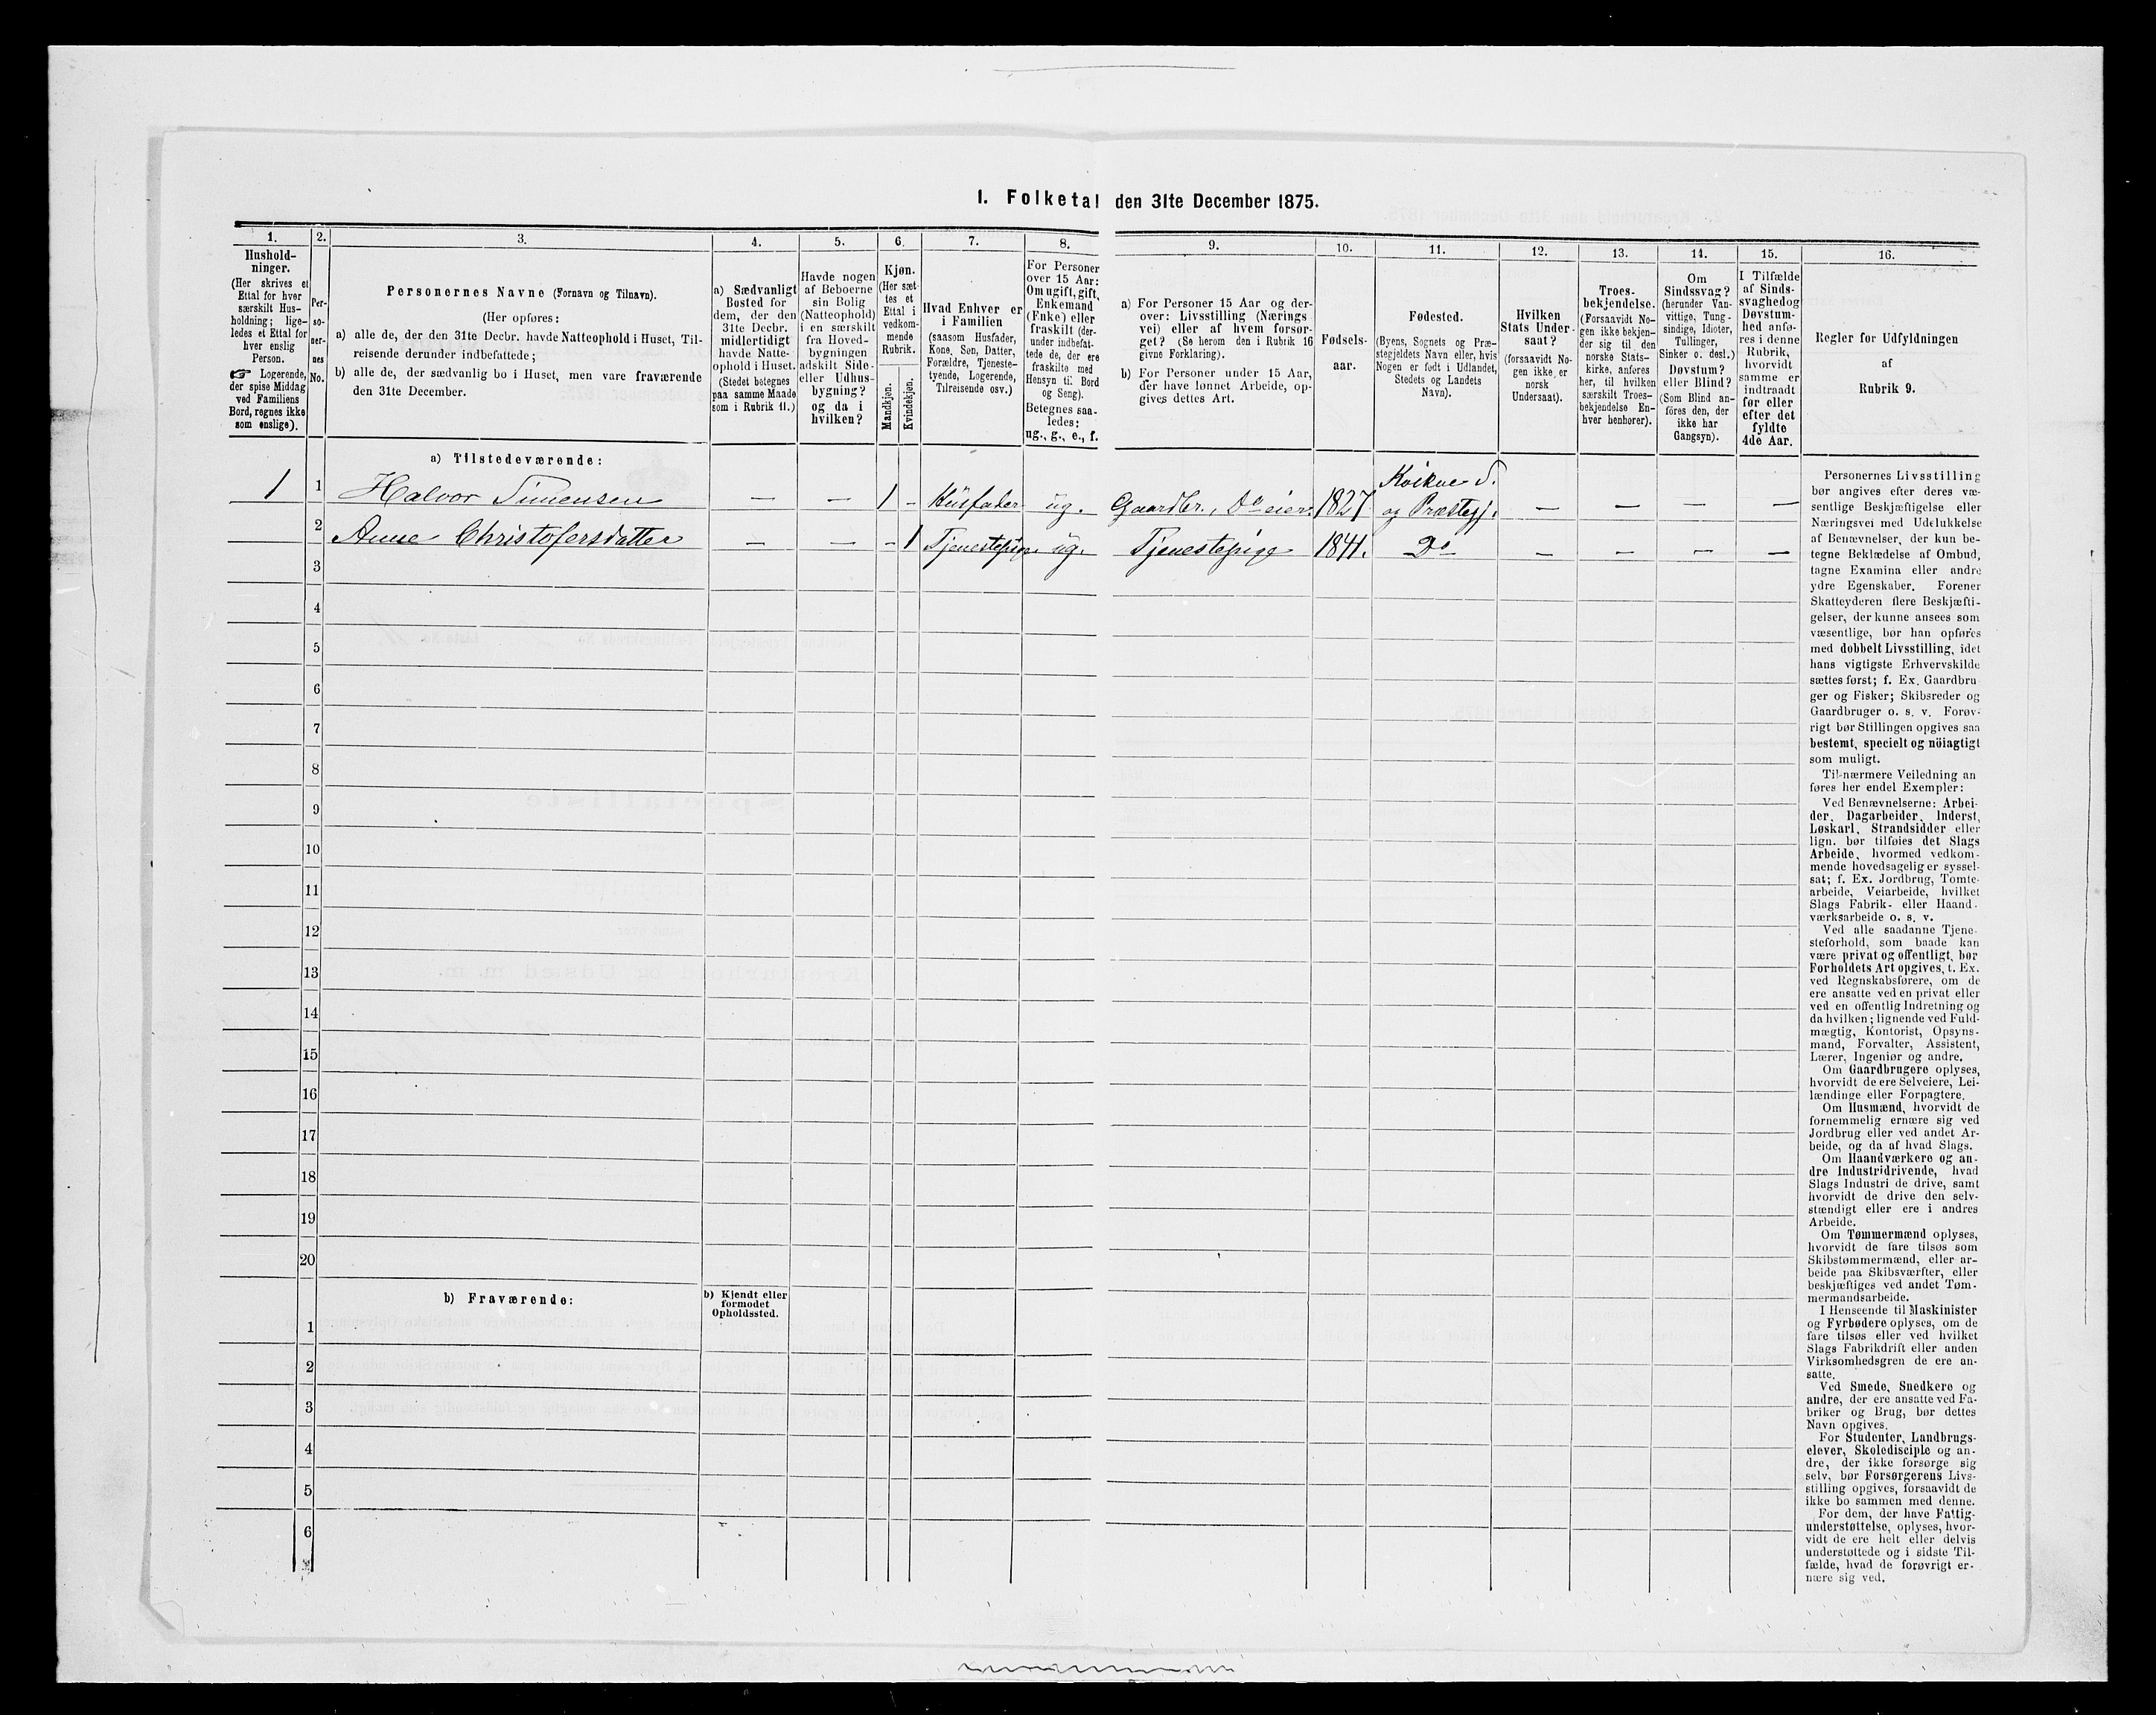 I. Folketal den 31te December 1875.
1.
Hushold-
ninger.
(Her skrives et
Ettal for hver
særskilt Hus-
holdning; lige-
ledes et Ettal for
hver enslig
Person.
☞ Logerende,
der spise Middag
ved Familiens
Bord, regnes ikke
som enslige).
2.
Per-
so-
ner-
nes
No.
3.
Personernes Navne (Fornavn og Tilnavn).
(Her opføres:
a) alle de, der den 31te Decbr. havde Natteophold i Huset, Til-
reisende derunder indbefattede;
b) alle de, der sædvanlig bo i Huset, men vare fraværende
den 31te December.
4.
a) Sædvanligt
Bosted for
dem, der den
31te Decbr.
midlertidigt
havde Natte-
ophold i Huset.
(Stedet betegnes
paa samme Maade
som i Rubrik 11.)
5.
Havde nogen
af Beboerne
sin Bolig
(Natteophold)
i en særskilt
fra Hoved-
bygningen
adskilt Side-
eller Udhus-
bygning?
og da i
hvilken?
6.
Kjøn.
(Her sæt-
tes et
Ettal i
vedkom-
mende
Rubrik.
Mandkjøn.
Kvindekjøn.
7.
Hvad Enhver er
i Familien
(saasom Husfader,
Kone, Søn, Datter,
Forældre, Tjeneste-
tyende, Logerende,
Tilreisende osv.)
8.
For Personer
over 15 Aar:
Om ugift, gift,
Enkemand
(Enke) eller
fraskilt (der-
under indbefat-
tede de, der ere
fraskilte med
Hensyn til Bord
og Seng).
Betegnes saa-
ledes:
ug., g., e., f.
9.
a) For Personer 15 Aar og der-
over: Livsstilling (Nærings-
vei) eller af hvem forsør-
get? (Se herom den i Rubrik 16
givne Forklaring).
b) For Personer under 15 Aar,
der have lønnet Arbeide, op-
gives dettes Art.
10.
Fødsels-
aar.
11.
Fødested.
(Byens, Sognets og Præ-
stegjeldets Navn eller, hvis
Nogen er født i Udlandet,
Stedets og Landets
Navn).
12.
Hvilken
Stats Under-
saat?
(forsaavidt No-
gen ikke er
norsk
Undersaat).
13.
Troes-
bekjendelse.
(Forsaavidt No-
gen ikke bekjen-
der sig til den
norske Stats-
kirke, anføres
her, til hvilken
særskilt Troes-
bekjendelse En-
hver henhører).
14.
Om
Sindssvag?
(herunder Van-
vittige, Tung-
sindige, Idioter,
Tullinger,
Sinker o. desl.)
Døvstum?
eller Blind?
(Som Blind an-
føres den, der
ikke har
Gangsyn).
15.
I Tilfælde
af Sinds-
svaghed og
Døvstum-
hed anfø-
res i denne
Rubrik,
hvorvidt
samme er
indtraadt
før eller
efter det
fyldte
4de Aar.
16.
Regler for Udfyldningen
af
Rubrik 9.
a) Tilstedeværende:
1 1 Halvor Simensen — — 1 - Husfader ug. Gaardbr., Do eier. 1827 Kvikne S.
og Præstegj. — — — —
2 Anne Christofersdatter — — - 1 Tjenestepige ug. Tjenestepige 1841. Do — — — —
3
4
5
6
7
8
9
10
11
12
13
14
15
16
17
18
19
20
b) Fraværende:
b) Kjendt eller
formodet
Opholdssted.
1
2
3
4
5
6
Personernes Livsstilling
bør angives efter deres væ-
sentlige Beskjæftigelse eller
Næringsvei med Udelukkelse
af Benævnelser, der kun be-
tegne Beklædelse af Ombud,
tagne Examina eller andre
ydre Egenskaber. Forener
Skatteyderen flere Beskjæfti-
gelser, der kunne ansees som
væsentlige, bør han opføres
med dobbelt Livsstilling, idet
hans vigtigste Erhvervskilde
sættes først; f. Ex. Gaardbru-
ger og Fisker; Skibsreder og
Gaardbruger o. s. v. Forøv-
rigt bør Stillingen opgives saa
bestemt, specielt og nöiagtigt
som muligt.
Til nærmere Veiledning an
føres her endel Exempler:
Ved Benævnelserne: Arbei-
der, Dagarbeider, Inderst,
Løskarl, Strandsidder eller
lign. bør tilføies det Slags
Arbeide, hvormed vedkom-
mende hovedsagelig er syssel-
sat; f. Ex. Jordbrug, Tomte-
arbeide, Veiarbeide, hvilket
Slags Fabrik- eller Haand-
værksarbeide o. s. v.
Ved alle saadanne Tjene-
steforhold, som baade kan
være privat og offentligt, bør
Forholdets Art opgives, t. Ex.
ved Regnskabsførere, om de
ere ansatte ved en privat eller
ved en offentlig Indretning og
da hvilken; lignende ved Fuld-
mægtig, Kontorist, Opsyns-
mand, Forvalter, Assistent,
Lærer, Ingeniør og andre.
Om Gaardbrugere oplyses,
hvorvidt de ere Selveiere, Lei-
lændinge eller Forpagtere.
Om Husmænd, hvorvidt de
fornemmelig ernære sig ved
Jordbrug eller ved andet Ar-
beide, og da af hvad Slags.
Om Haandværkere og an-
dre Industridrivende, hvad
Slags Industri de drive, samt
hvorvidt de drive den selv-
stændigt eller ere i andres
Arbeide.
Om Tømmermænd oplyses,
hvorvidt de fare tilsøs som
Skibstømmermænd, eller ar-
beide paa Skibsværfter, eller
beskjæftiges ved andet Tøm-
mermandsarbeide.
I Henseende til Maskinister
og Fyrbødere oplyses, om de
fare tilsøs eller ved hvilket
Slags Fabrikdrift eller anden
Virksomhedsgren de ere an-
satte.
Ved Smede, Snedkere og
andre, der ere ansatte ved Fa-
briker og Brug, bør dettes
Navn opgives.
For Studenter, Landbrugs-
elever, Skoledisciple og an-
dre, der ikke forsørge sig
selv, bør Forsørgerens Livs-
stilling opgives, forsaavidt de
ikke bo sammen med denne.
For dem, der have Fattig-
understøttelse, oplyses, hvor-
vidt de ere helt eller delvis
understøttede og i sidste Til-
fælde, hvad de forøvrigt er-
nære sig ved.